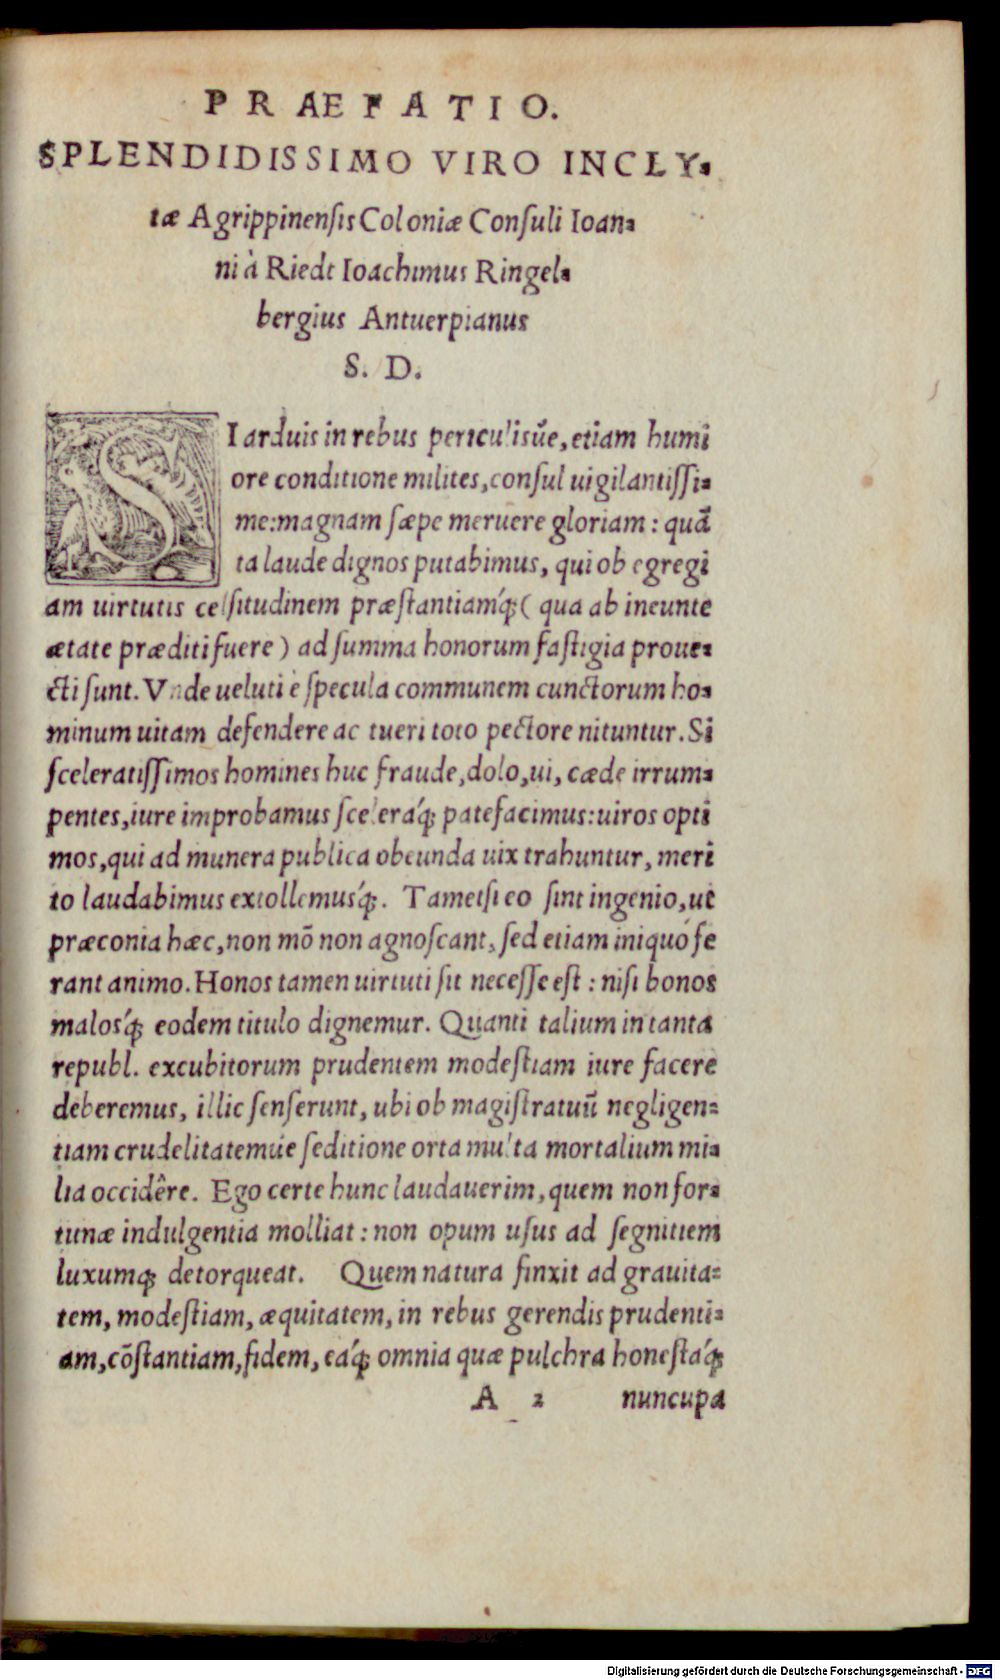 PRAEFATIO.
SPLENDIDISSIMO VIRO INCLY-
tæ Agrippinensis Coloniæ Consuli Ioan-
ni à Riedt Ioachimus Ringel-
bergius Antuerpianus
S. D.
SI arduis in rebus periculisũe, etiam humi
ore conditione milites, consul uigilantissi-
me: magnam sæpe meruere gloriam: quã
ta laude dignos putabimus, qui ob egregi
am uirtutis celsitudinem præstantiamq́; ( qua ab ineunte
ætate præditi fuere ) ad summa honorum fastigia proue-
cti sunt. Vnde ueluti è specula communem cunctorum ho-
minum uitam defendere ac tueri toto pectore nituntur. Si
sceleratissimos homines huc fraude, dolo, ui, cæde irrum-
pentes, iure improbamus sceleraq́; patefacimus: uiros opti
mos, qui ad munera publica obeunda uix trahuntur, meri
to laudabimus extollemusq́;. Tametsi eo sint ingenio, ut
præconia hæc, non mõ non agnoscant, sed etiam iniquo fe
rant animo. Honos tamen uirtuti sit necesse est: nisi bonos
malosq́; eodem titulo dignemur. Quanti talium in tanta
republ. excubitorum prudentem modestiam iure facere
deberemus, illic senserunt, ubi ob magistratuũ negligen-
tiam crudelitatemúe seditione orta multa mortalium mi-
lia occidêre. Ego certe hunc laudauerim, quem non for-
tunæ indulgentia molliat: non opum usus ad segnitiem
luxumq; detorqueat. Quem natura finxit ad grauita-
tem, modestiam, æquitatem, in rebus gerendis prudenti-
am, cõstantiam, fidem, eaq́; omnia quæ pulchra honestaq́;
A 2 nuncupa
Digitalisierung gefördert durch die Deutsche Forschungsgemeinschaft - DFG